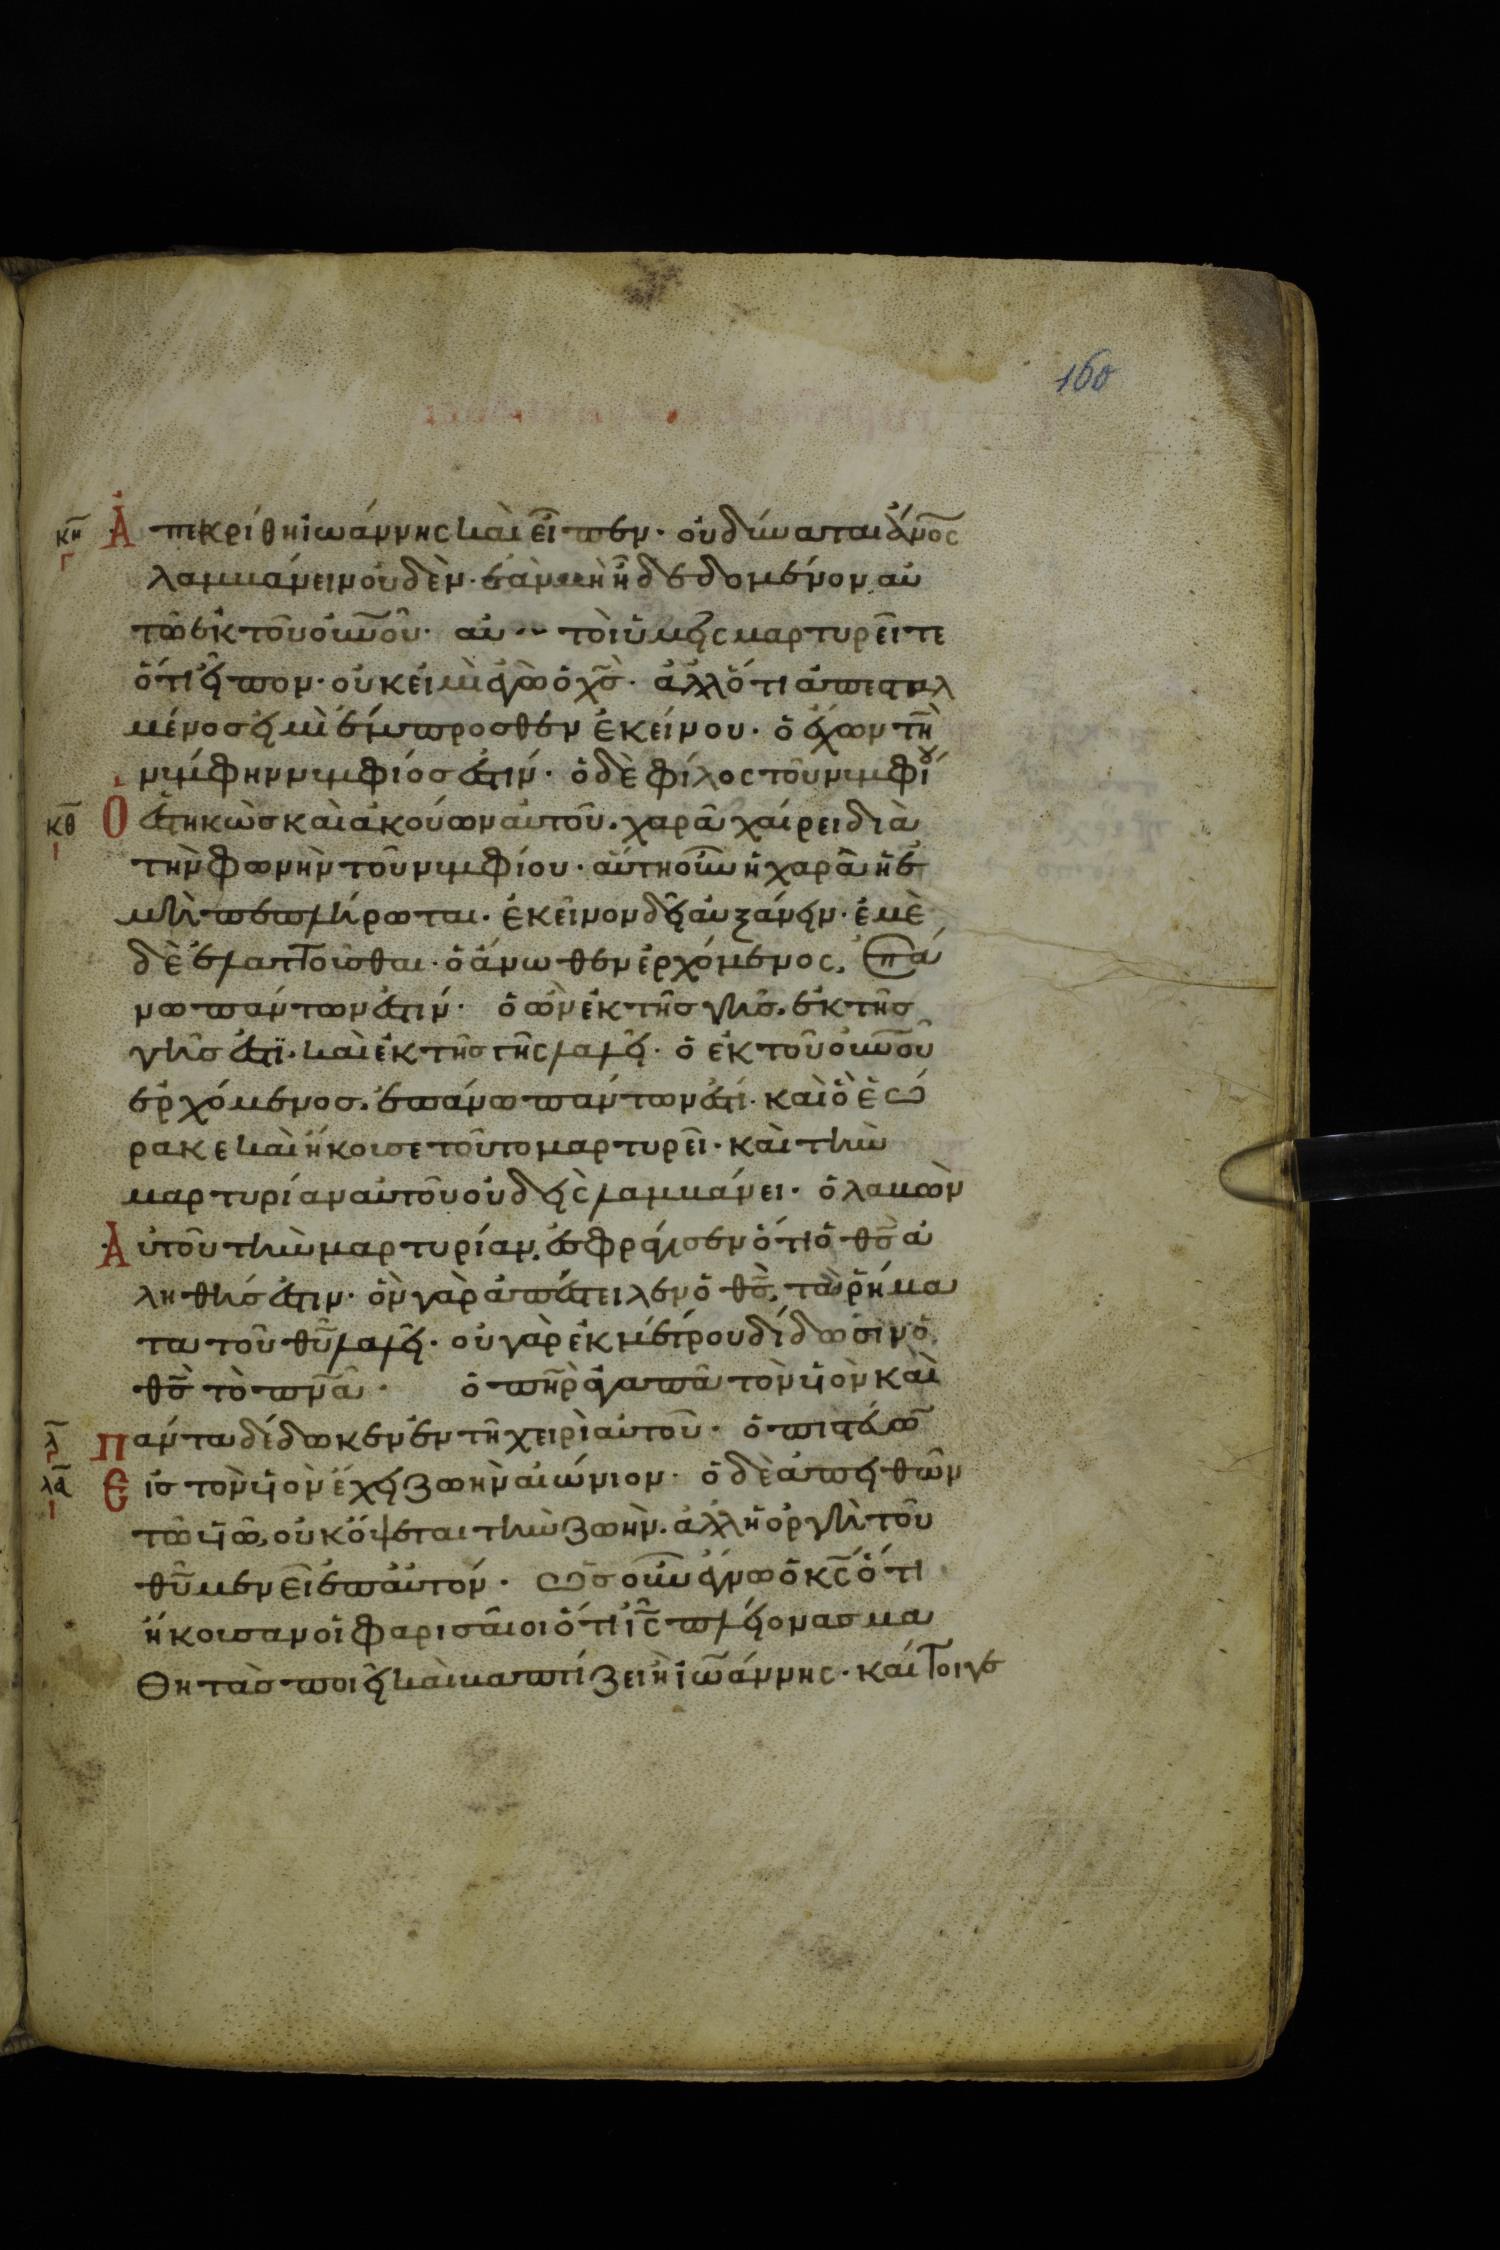 160
κη Ἀπεκρίθη ἰωάννης καὶ εἶπεν· οὐ δύναται ἄνος
γ λαμβάνειν οὐδὲν· ἐὰν μὴ ἦ δεδομένον αὐ
τῶ ἐκ τοῦ οὐνοῦ· αὐτοὶ ὑμεῖς μαρτυρεῖτε
ὅτι εἶπον· οὐκ εἰμὶ ἐγὼ ὁ χς· ἀλλ ὅτι ἀπεσταλ
μένος εἰμὶ ἔμπροσθεν ἐκείνου· ὁ ἔχων τὴν
νύμφην νυμφίος ἐστίν· ὁ δὲ φίλος τοῦ νυμφίου
κθ Ὁ ἑστηκὼς καὶ ἀκούων αὐτοῦ. χαρᾶ χαίρει διὰ
ι τὴν φωνὴν τοῦ νυμφίου· αὕτη οὖν ἡ χαρὰ ἡ ἐ
μὴ πεπλήρωται· ἐκεῖνον δεῖ αὐξάνειν· ἐμὲ
δὲ ἐλαττοῦσθαι· ὁ ἄνωθεν ἐρχόμενος, ἐπά
νω πάντων ἐστίν· ὁ ὢν ἐκ τῆς γῆς. ἐκ τῆς
γῆς ἐστι. καὶ ἐκ τῆς γῆς λαλεῖ· ὁ ἐκ τοῦ οὐνοῦ
ἐρχόμενος. ἐπάνω πάντων ἐστί· καὶ ὃ ἑώ
ρακε καὶ ἤκουσε τοῦτο μαρτυρεῖ· καὶ τὴν
μαρτυρίαν αὐτοῦ οὐδεὶς λαμβάνει· ὁ λαβὼν
Αὐτοῦ τὴν μαρτυρίαν, ἐσφράγισεν ὅτι ὁ θς ἀ
ληθής ἐστιν· ὃν γὰρ ἀπέστειλεν ὁ θς, τὰ ῥήμα
τα τοῦ θυ λαλεῖ· οὐ γὰρ ἐκ μέτρου δίδωσιν ὁ
θς τὸ πνα· ὁ πηρ ἀγαπᾶ τὸν υἱὸν καὶ
λ Πάντα δέδωκεν ἐν τῆ χειρὶ αὐτοῦ· ὁ πιστεύων
λα Εἰς τὸν υἱὸν ἔχει ζωὴν αἰώνιον· ὁ δὲ ἀπειθῶν
ι τῶ υἱῶ, οὐκ ὄψεται τὴν ζωὴν. ἀλλ ἡ ὀργὴ τοῦ
θυ μένει ἐπ αὐτόν· ὡς οὖν ἔγνω ὁ κς ὅτι
ἤκουσαν οἱ φαρισαῖοι ὅτι ις πλείονας μα
θητὰς ποιεῖ καὶ βαπτίζει ἢ ἰωάννης· καίτοιγε